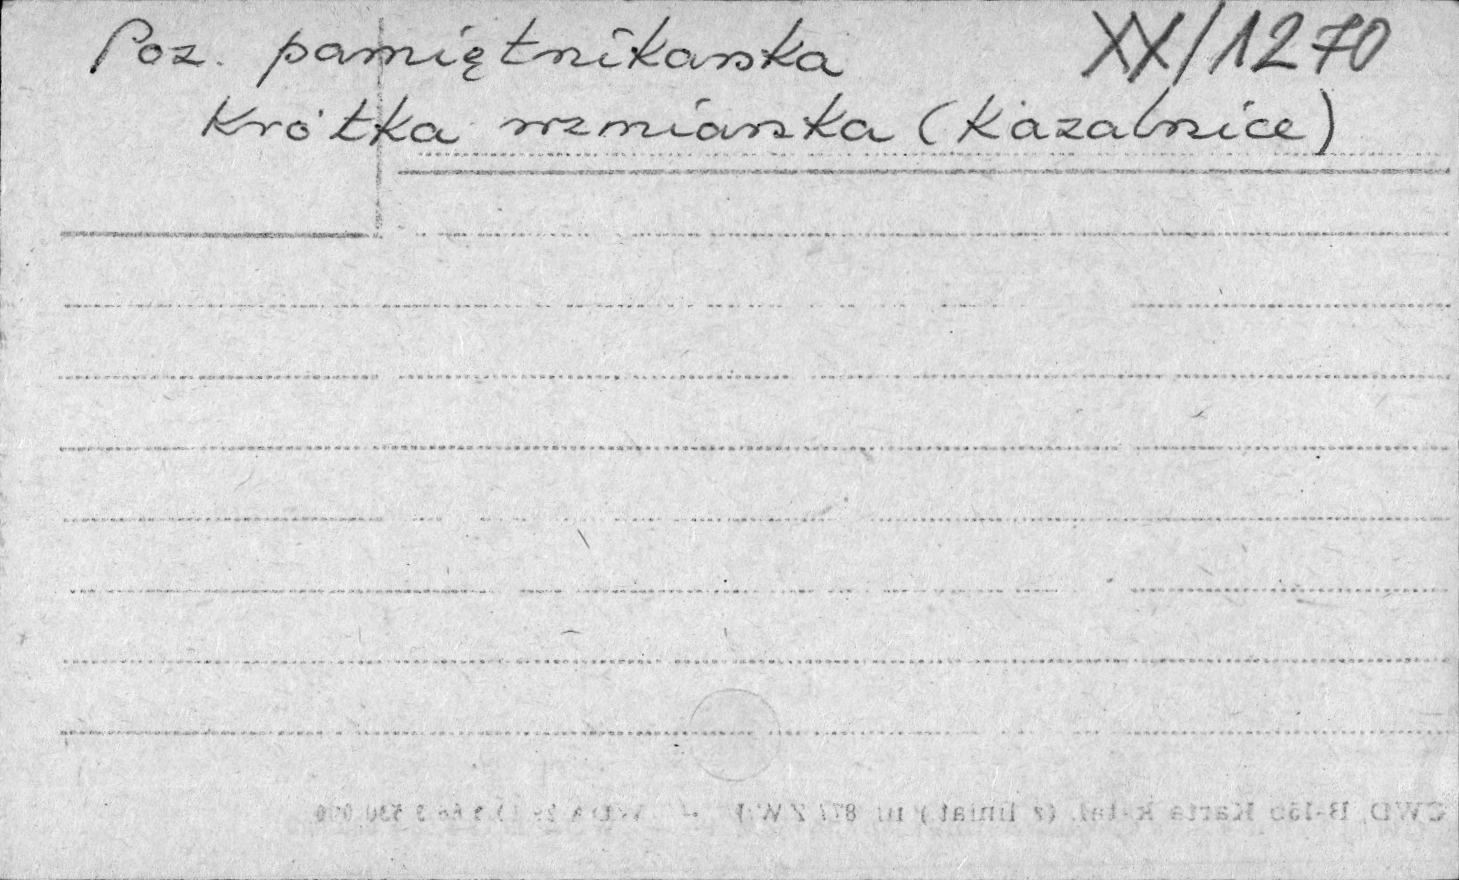 Poz. pamiętnikarska XX/1270
Krótka wzmianka (Kazalnice)
CWD, B-15b Karta k-tal. (z liniat.)